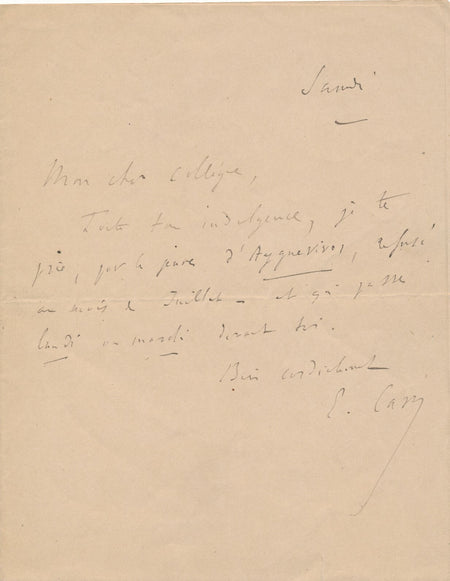 Samedi
Mon cher collègue,
Toute ton indulgence, je te
prie, pour le jeune d'Ayguesvives, refusé
au mois de Juillet - et qui passe
lundi ou mardi devant toi.
Bien cordialement
E.